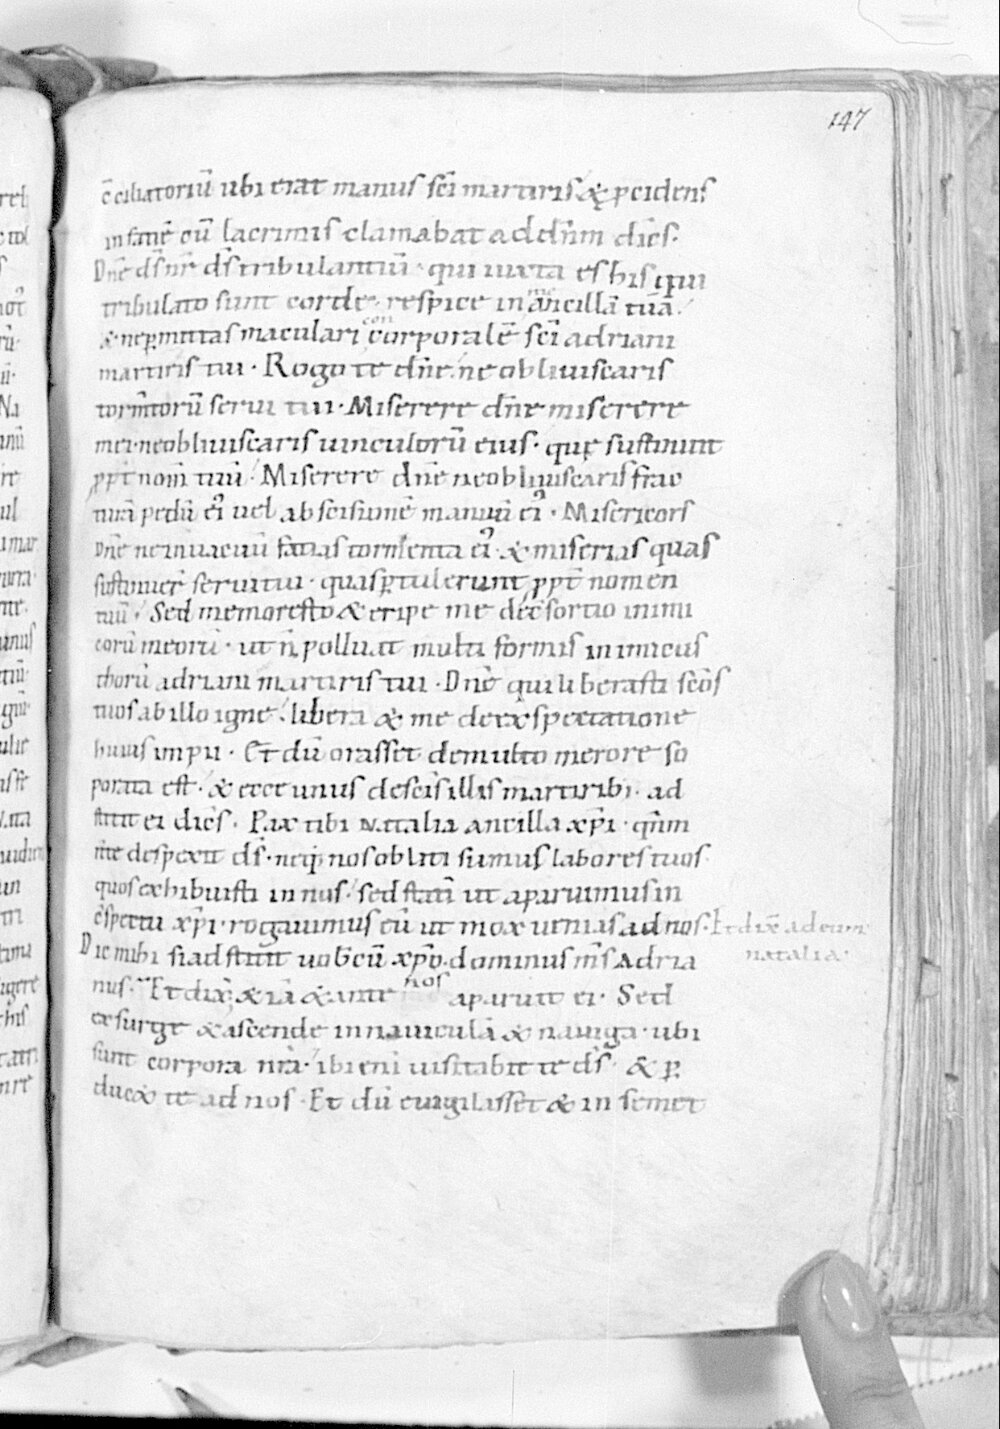 147
c̄ciliatoriū ubi erat manus sc̄i martiris & p̱cidens
in faciē cū lacrimis clamabat ad dn̄m dicēs.
Dn̄e ds̄ nr̄ ds̄ tribulantiū · qui iuxta es his qui
tribulato sunt corde · respice in me ancillā tuā.
& ne p̱mittas maculari con corporalē sc̄i adriani
martiris tui · Rogo te dn̄e · ne obliuiscaris
torm̄torū serui tui · Miserere dn̄e miserere
mei · ne obliuiscaris uinculorū eius · quę sustinuit
ppt̄ nom̄ tuū · Miserere dn̄e ne obliuiscaris frac
turā pedū eꝰ uel abscisionē manuū eꝰ · Misericors
Dn̄e ne in uacuū facias tormenta eꝰ · & miserias quas
sustinuer̄ serui tui · quas p̱tulerunt ppt̄ nomen
tuū · Sed memor esto & eripe me de c̄sortio inimi
corū meorū · ut n̄ polluat multi formis inimicus
thorū adriani martiris tui · Dn̄e qui liberasti scōs
tuos ab illo igne · libera & me de exspectatione
huius impii · Et dū orasset de multo merore so
porata est · & ecce unus de scīs illis martiribꝰ · ad
stitit ei dicēs · Pax tibi Natalia ancilla xp̄i · qn̄m
n̄ te despexit ds̄ · neq; nos obliti sumus labores tuos ·
quos exhibuisti in nos · sed statī ut aparuimus in
c̄spectu xp̄i · rogauimus eū ut mox uenias ad nos · Et dix̄ ad eum
natalia ·
Dic mihi si adstitit uobcū xp̄o · dominus m̄s Adria
nus · Et dix̄ & iā & ante nos aparuit ei · Sed
exsurge & ascende in nauiculā & nauiga · ubi
sunt corpora nr̄a · ibi enī uisitabit te ds̄ · & p̱
ducet te ad nos · Et dū euigilasset & in semet